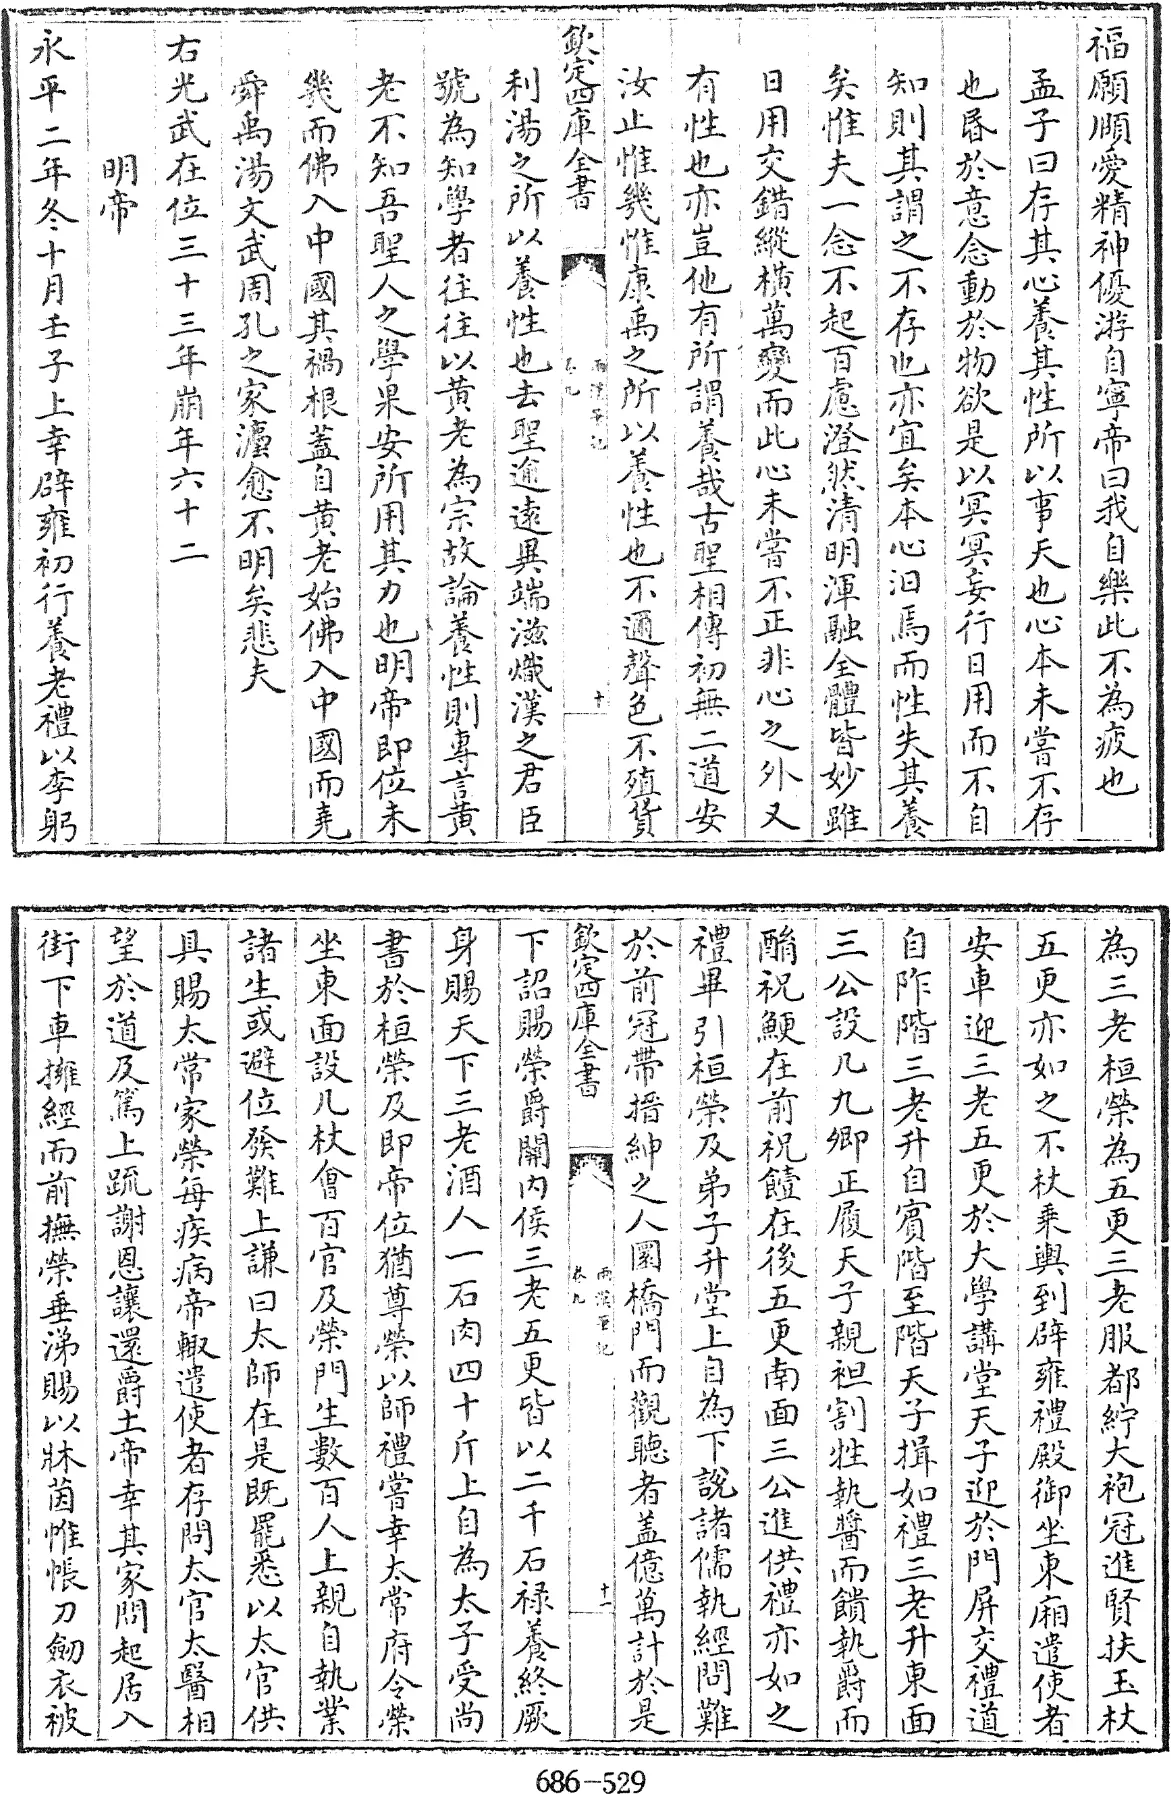 福願頤愛精神優游自寧帝曰我自樂此不為疲也
孟子曰存其心養其性所以事天也心本未嘗不存
也昬於意念動於物欲是以冥冥妄行日用而不自
知則其謂之不存也亦宜矣本心汩焉而性失其養
矣惟夫一念不起百慮澄然清明渾融全體皆妙雖
日用交錯縱橫萬變而此心未嘗不正非心之外又
有性也亦豈他有所謂養哉古聖相傳初無二道安
汝止惟幾惟康禹之所以養性也不邇聲色不殖貨
欽定四庫全書
兩漢筆記
卷九
十
利湯之所以養性也去聖逾逺異端滋熾漢之君臣
號為知學者往往以黄老為宗故論養性則專言黄
老不知吾聖人之學果安所用其力也明帝即位未
幾而佛入中國其禍根蓋自黄老始佛入中國而堯
舜禹湯文武周孔之家灋愈不明矣悲夫
右光武在位三十三年崩年六十二
明帝
永平二年冬十月壬子上幸辟雍初行養老禮以李躬
為三老桓榮為五更三老服都紵大袍冠進賢扶玉杖
五更亦如之不杖乗輿到辟雍禮殿御坐東廂遣使者
安車迎三老五更於大學講堂天子迎於門屏交禮道
自阼階三老升自賓階至階天子揖如禮三老升東面
三公設几九卿正履天子親袒割牲執醬而饋執爵而
酳祝鯁在前祝饐在後五更南面三公進供禮亦如之
禮畢引桓榮及弟子升堂上自為下說諸儒執經問難
於前冠帶搢紳之人圜橋門而觀聽者蓋億萬計於是
欽定四庫全書
兩漢筆記
卷九
十一
下詔賜榮爵關内侯三老五更皆以二千石禄養終厥
身賜天下三老酒人一石肉四十斤上自為太子受尚
書於桓榮及即帝位猶尊榮以師禮嘗幸太常府令榮
坐東面設几杖會百官及榮門生數百人上親自執業
諸生或避位發難上謙曰太師在是既罷悉以太官供
具賜太常家榮每疾病帝輙遣使者存問太官太醫相
望於道及篤上疏謝恩讓還爵土帝幸其家問起居入
街下車擁經而前撫榮垂涕賜以牀茵帷帳刀劒衣被
686-529